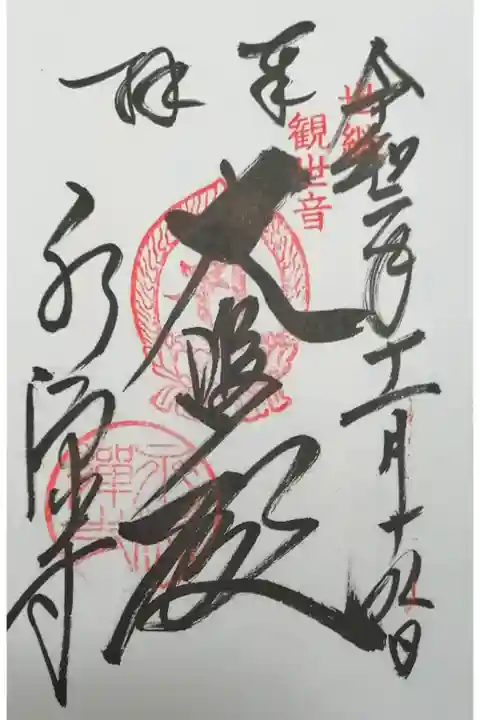 令和二年十一月十九日
奉拝
世継
観世音
大悲殿
永源寺
永源
禅寺